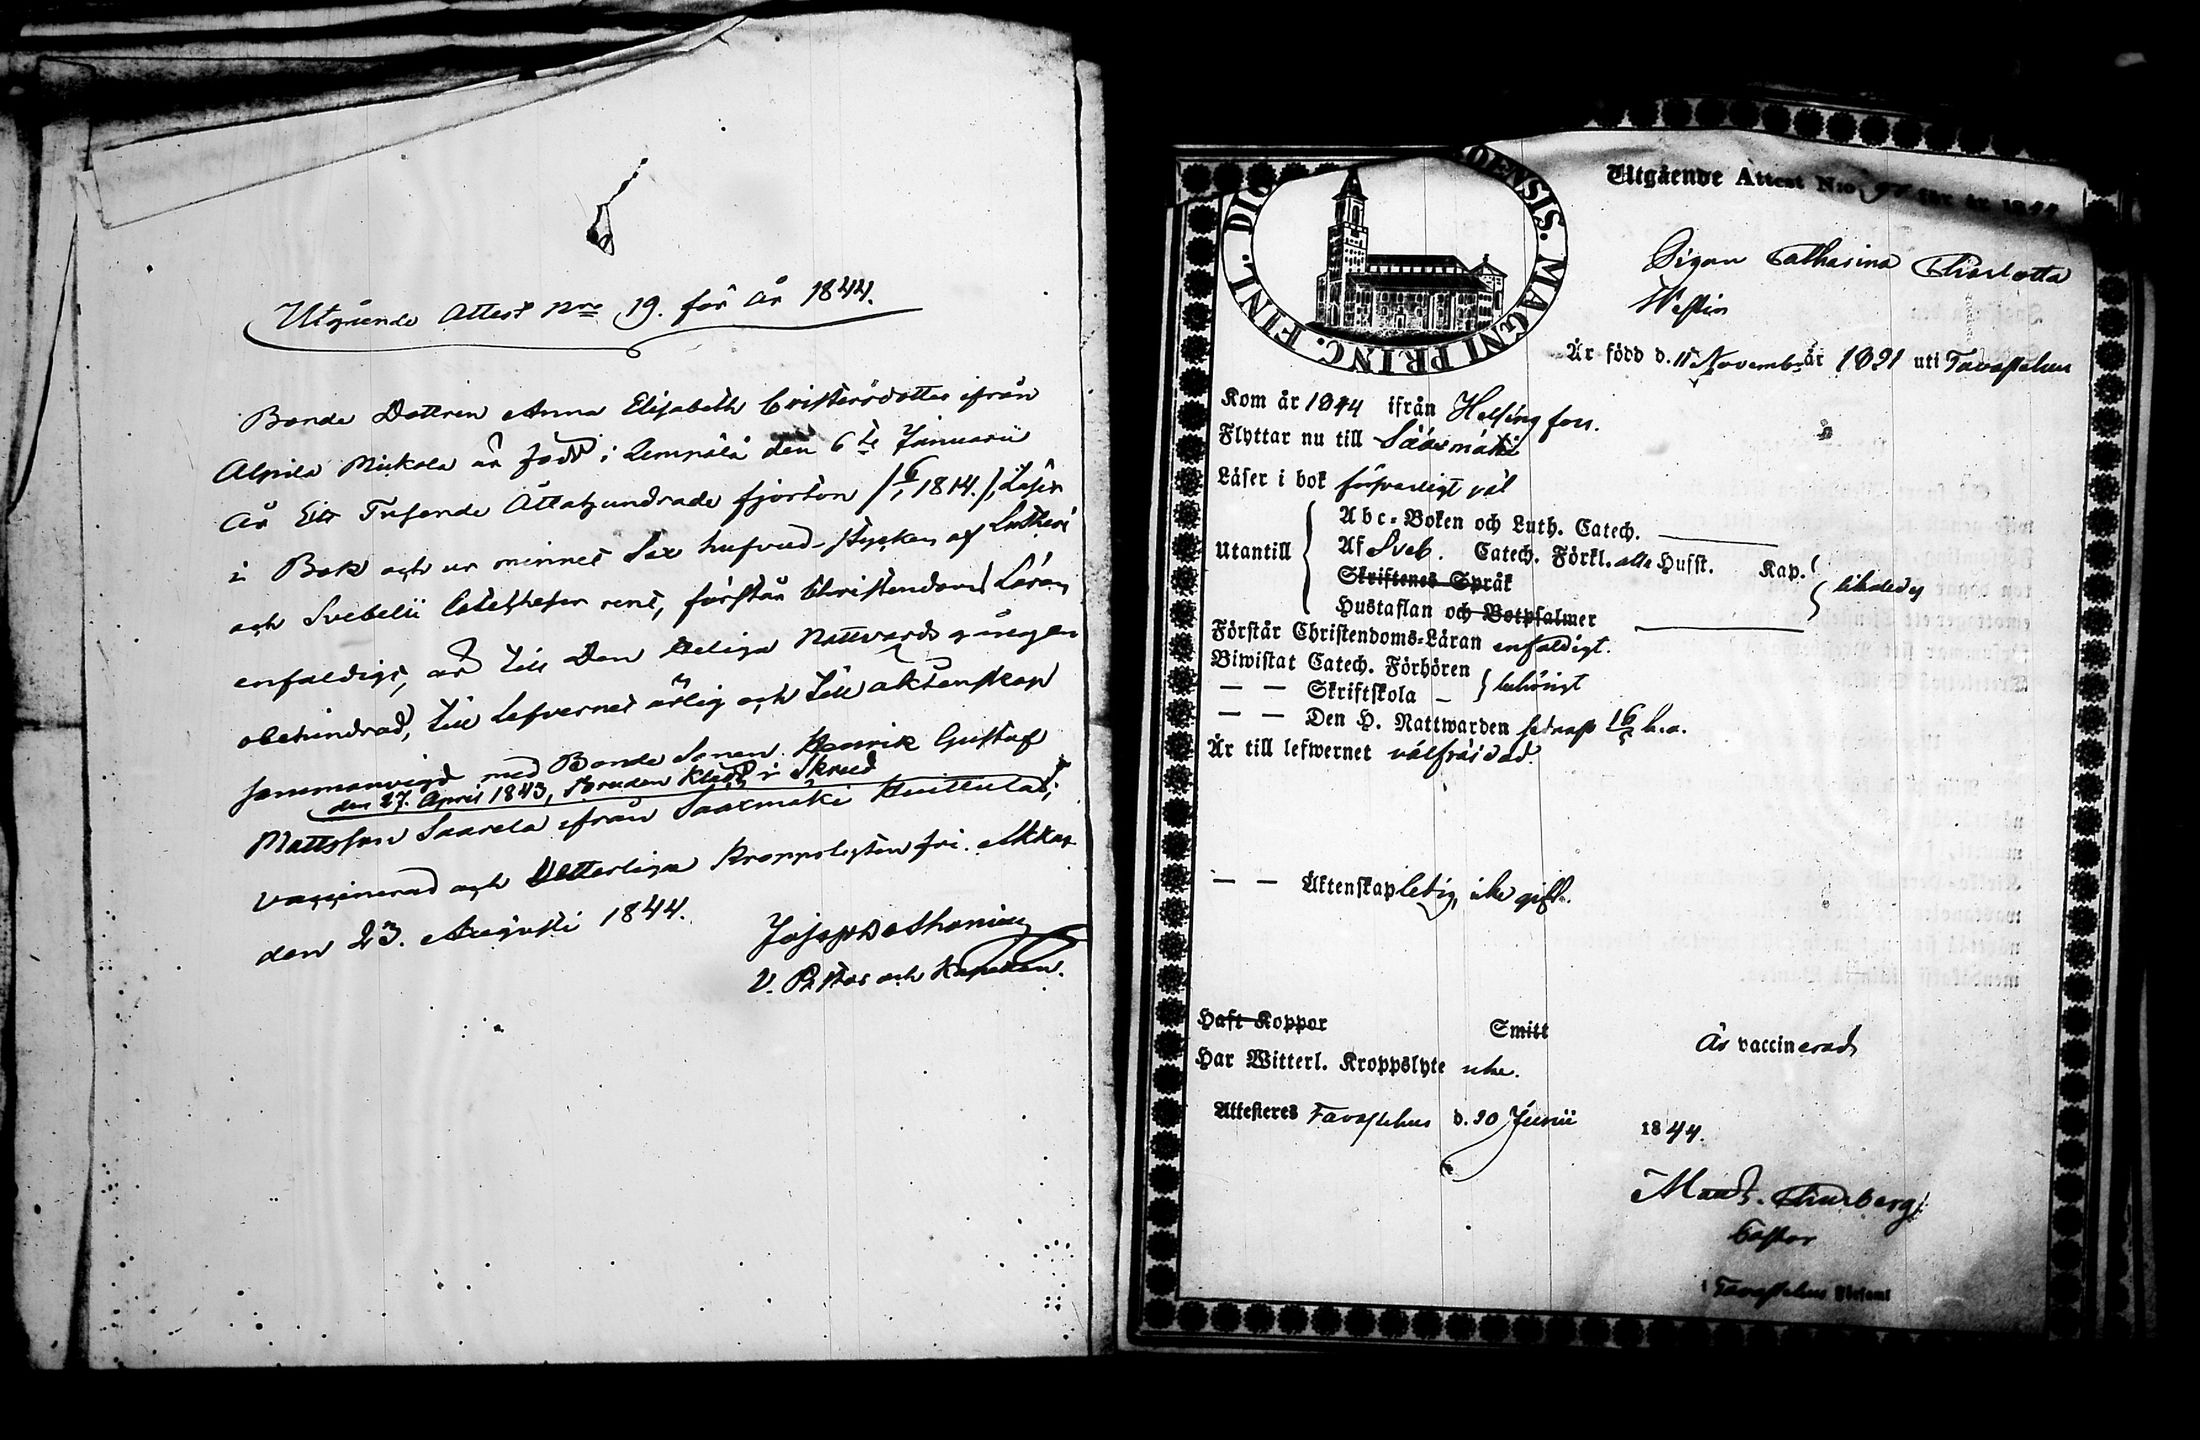 Utgående Attest Nro 19. för år 1844.
Bonde Dottren Anna Elisabeth Christersdotter ifrån
Alpila Mickola är född i Lempälä den 6te Januarii
år Ett Tusende Åttahundrade fjorton /6/1 1814./, Läser
i Bok och ur minnet Sex hufvud-stycken af Lutheri
och Svebelii Catecheser rent, förstår Christendoms Läran
enfaldigt, är till Den Heliga Nattvards gången
obehindrad, till Lefvernet ärlig och till äktenskap
sammanvigd med Bonde Sonen Henrik Gustaf
den 27. April 1843, Bruden klädd i Skrud
Mattsson Saarela ifrån Saaxmäki Huittula;
vaccinerad och Vetterliga Kroppslyten fri. Akkas
den 23. Augusti 1844.
Joseph
V. Pastor och Kapellan.
DIO BOENSIS. MAGNI PRINC. FINL.
Utgående Attest N:ro för år 1844
Pigan Catharina Charlotta
Westin
Är född d. 11 Novembr år 1821 uti Tavastehus
Kom år 1844 ifrån Helsingfors.
Flyttar nu till Sääxmäki
Läser i bok försvarligt väl
Abc-Boken och Luth. Catech.
Utantill Af Sveb. Catech. Förkl. alla Husst. Kap. likaledes
Skriftenes Språk
Hustaflan och Botpsalmer
Förstår Christendoms-Läran enfaldigt.
Biwistat Catech. Förhören
— — Skriftskola – behörigt
— — Den H. Nattwarden sednast 16/5 h.a.
Är till lefwernet välfräjdad.
— — Äktenskap ledig, icke gift.
Haft Koppor Smitt Är vaccinerad
Har Witterl. Kroppslyte icke.
Attesteres Tavastehus d. 20 Junii 1844.
Pastor
i Tavastehus Församl